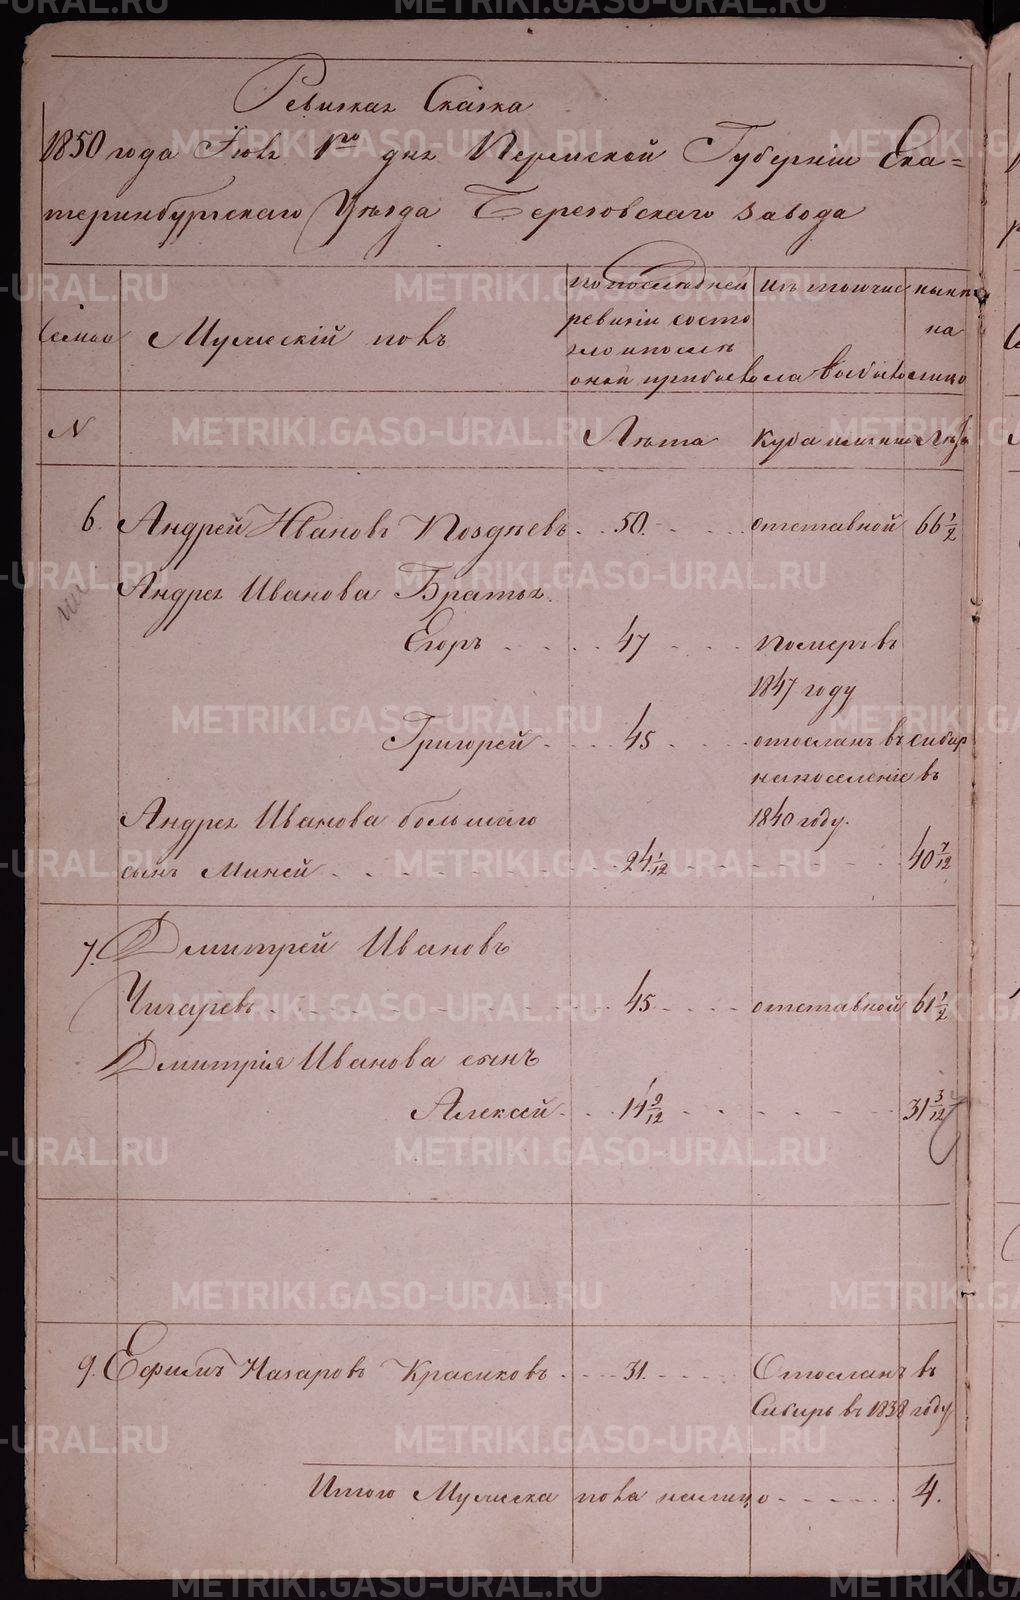 Ревизкая Сказка
1850 года Іюля 1го дня Пермской Губерніи Ека=
теринбургскаго Уѣзда Березовскаго завода
Семьи
Мужескій полъ
по последней ревизіи состо яло и после оной прибыло
изъ того числа выбыло
ныне на лицо
N
Лѣта
Куда именно
Лѣта
6. Андрей Ивановъ Позднѣевъ 50. отставной 66 1/2
Андрея Иванова Братья
Егоръ 47 померъ въ
1847 году
Григорей 45 отосланъ въ сибир
на поселеніе въ
1840 году.
Андрея Иванова большаго
сынъ Миней 24 1/12 40 7/12
7. Дмитрей Ивановъ
Чигаревъ 45 отставной 61 1/2
Дмитрія Иванова сынъ
Алексей 14 9/12 31 3/12
9. Ефимъ Назаровъ Красиковъ 31. Отосланъ въ
Сибирь въ 1838 году
Итого Мужеска пола налицо 4.
METRIKI.GASO-URAL.RU